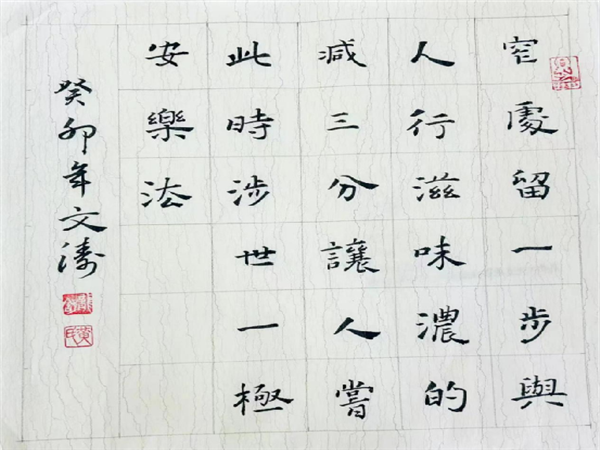 窄處留一步與
人行滋味濃的
減三分讓人嘗
此時涉世一極
安樂法
癸卯年文濤